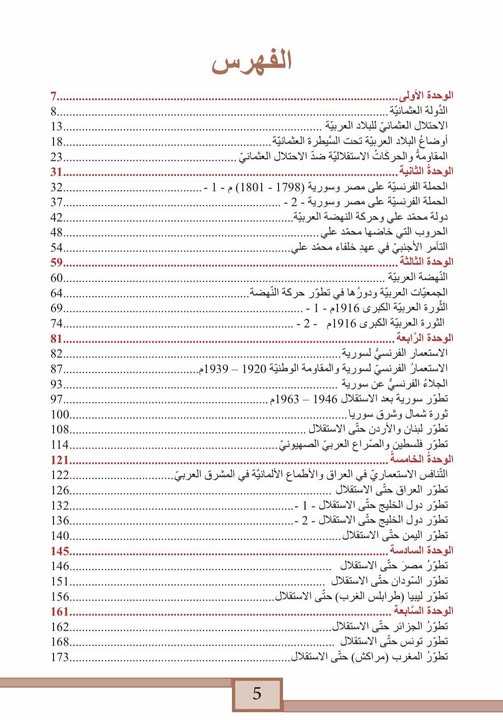 الفهرس
الوحدة الأولى.......7
الدّولة العثمانيّة.......8
الاحتلال العثمانيّ للبلاد العربيّة.......13
أوضاعُ البلاد العربيّة تحت السّيطرة العثمانيّة.......18
المقاومةُ والحركاتُ الاستقلاليّة ضدّ الاحتلال العثمانيّ.......23
الوحدةُ الثانية.......31
الحملة الفرنسيّة على مصر وسورية (1798 - 1801) م - 1 -.......32
الحملة الفرنسيّة على مصر وسورية - 2 -.......37
دولة محمّد علي وحركة النهضة العربيّة.......42
الحروب التي خاضها محمّد علي.......48
التآمر الأجنبيّ في عهدِ خلفاء محمّد علي.......54
الوحدة الثالثة.......59
النّهضة العربيّة.......60
الجمعيّات العربيّة ودورُها في تطوّر حركة النّهضة.......64
الثّورة العربيّة الكبرى 1916م - 1 -.......69
الثورة العربيّة الكبرى 1916م - 2 -.......74
الوحدة الرّابعة.......81
الاستعمار الفرنسيُّ لسورية.......82
الاستعمارُ الفرنسيّ لسورية والمقاومة الوطنيّة 1920 – 1939م.......87
الجلاءُ الفرنسيُّ عن سورية.......93
تطوّر سورية بعد الاستقلال 1946 – 1963م.......97
ثورة شمال وشرق سوريا.......100
تطوّر لبنان والأردن حتّى الاستقلال.......108
تطوّر فلسطين والصّراع العربيّ الصهيونيّ.......114
الوحدةُ الخامسةُ.......121
التّنافس الاستعماريّ في العراق والأطماع الألمانيّة في المشرق العربيّ.......122
تطوّر العراق حتّى الاستقلال.......126
تطوّر دول الخليج حتّى الاستقلال - 1 -.......132
تطوّر دول الخليج حتّى الاستقلال - 2 -.......136
تطوّر اليمن حتّى الاستقلال.......140
الوحدة السادسة.......145
تطوّرُ مصرَ حتّى الاستقلال.......146
تطوّر السّودان حتّى الاستقلال.......151
تطوّر ليبيا (طرابلس الغرب) حتّى الاستقلال.......156
الوحدة السّابعة.......161
تطوّرُ الجزائر حتّى الاستقلال.......162
تطوّر تونس حتّى الاستقلال.......168
تطوّرُ المغرب (مراكش) حتّى الاستقلال.......173
5